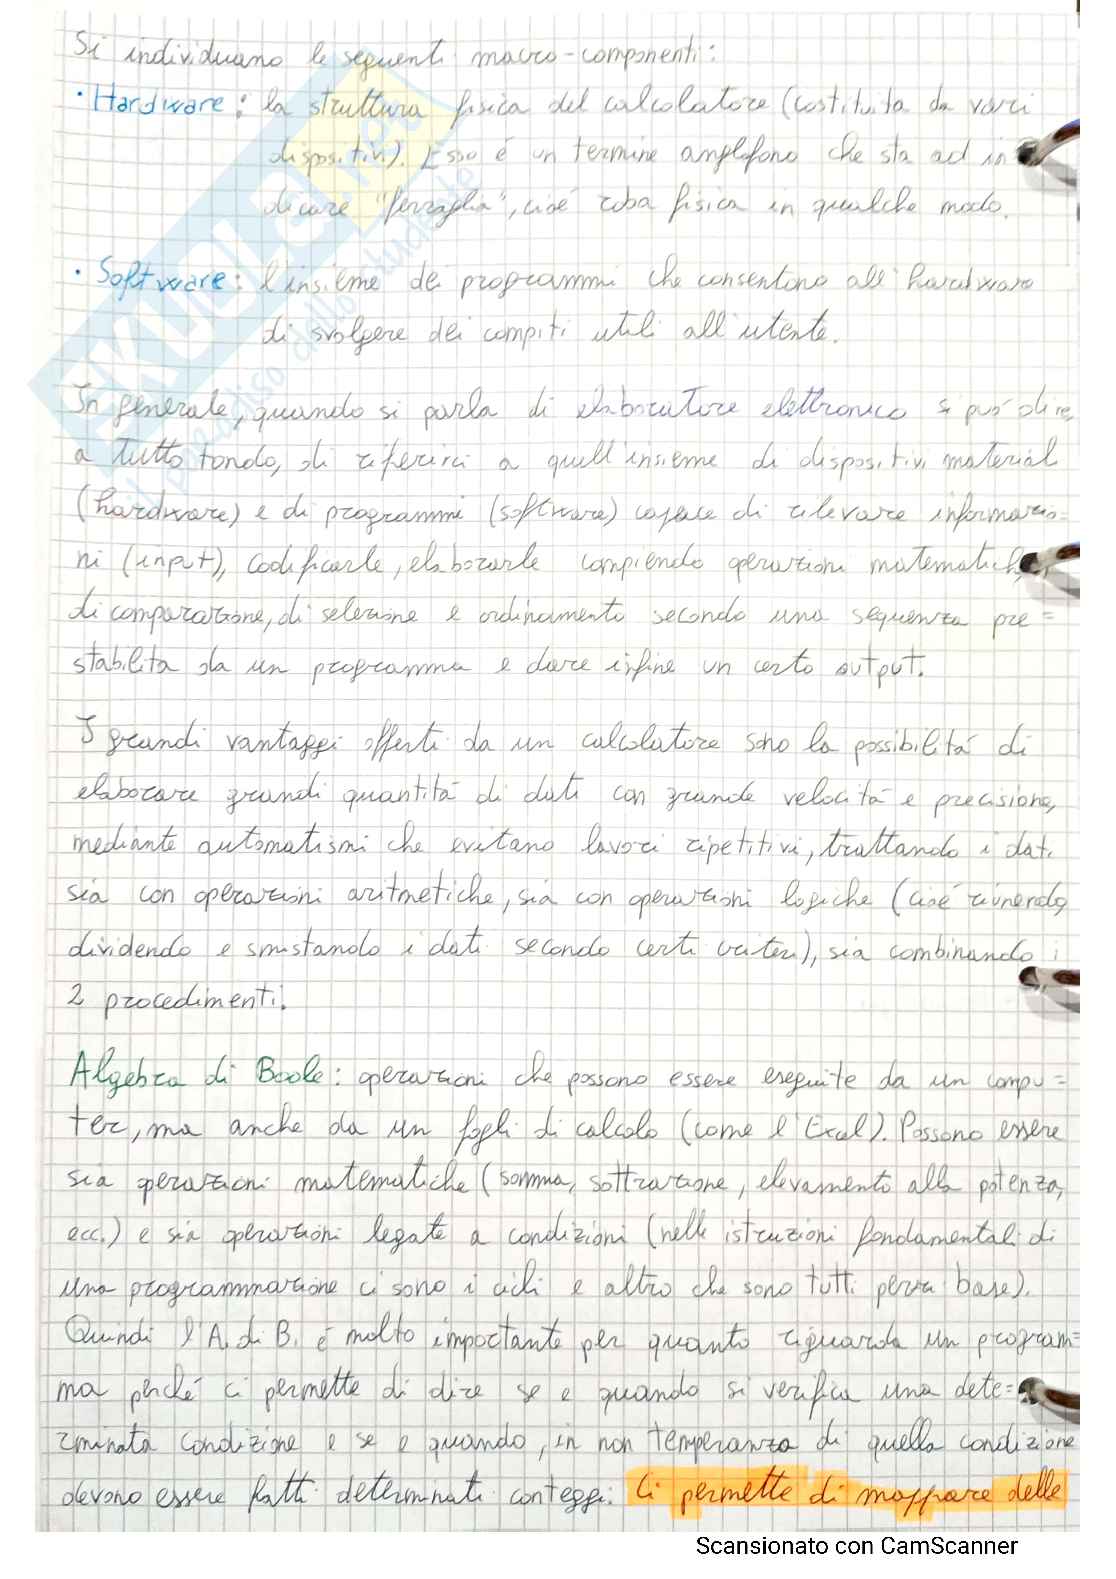 Si individuano le seguenti macro-componenti:
• Hardware: la struttura fisica del calcolatore (costituita da vari
dispositivi). Esso é un termine anglofono che sta ad in
dicare "ferraglia", cioé roba fisica in qualche modo.
• Software: l'insieme dei programmi che consentono all'hardware
di svolgere dei compiti utili all'utente.
In generale, quando si parla di elaboratore elettronico si puó dire,
a tutto tondo, di riferirci a quell'insieme di dispositivi material
(hardware) e di programmi (software) capace di rilevare informazio=
ni (input), codificarle, elaborarle compiendo operazioni matematich
di comparazione, di selezione e ordinamento secondo una sequenza pre=
stabilita da un programma e dare infine un certo output.
I grandi vantaggi offerti da un calcolatore sono la possibilitá di
elaborare grandi quantitá di dati con grande velocitá e precisione,
mediante automatismi che evitano lavori ripetitivi, trattando i dati
sia con operazioni aritmetiche, sia con operazioni logiche (cioé riunendo,
dividendo e smistando i dati secondo certi criteri), sia combinando i
2 procedimenti.
Algebra di Boole: operazioni che possono essere eseguite da un compu=
ter, ma anche da un fogli di calcolo (come l'Excel). Possono essere
sia operazioni matematiche (somma, sottrazione, elevamento alla potenza,
ecc.) e sia operazioni legate a condizioni (nelle istruzioni fondamentali di
una programmazione ci sono i cicli e altro che sono tutti base).
Quindi l'A. di B. é molto importante per quanto riguarda un program=
ma perché ci permette di dire se e quando si verifica una dete=
rminata condizione e se e quando, in non temperanza di quella condizione
devono essere fatti determinati conteggi. Ci permette di mappare delle
Scansionato con CamScanner